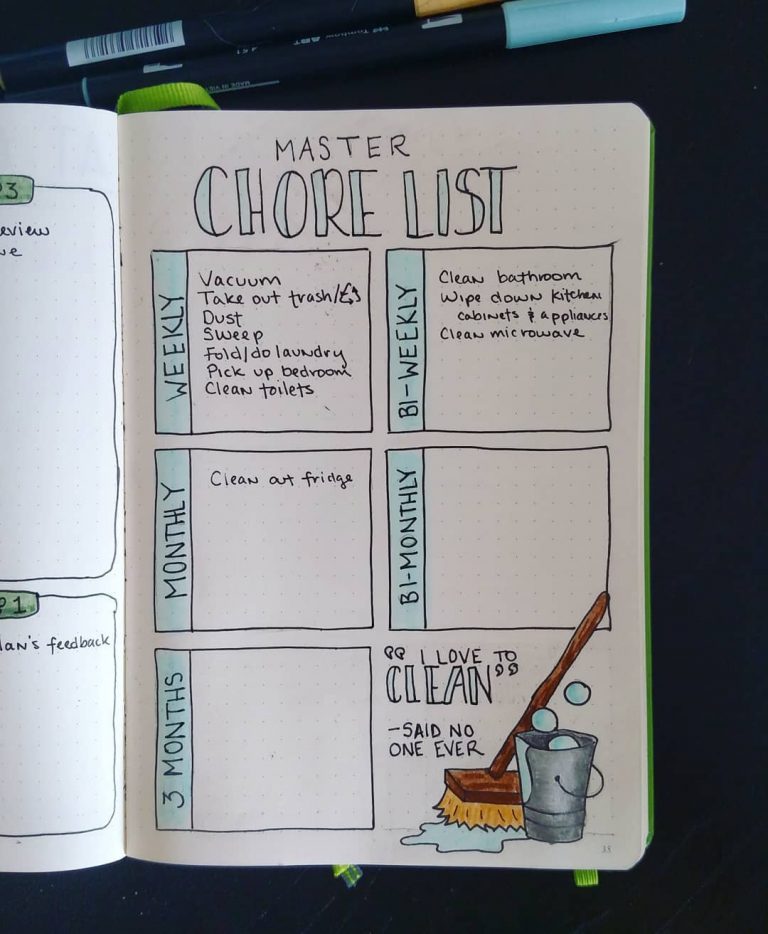 Tombow ABT
451
MADE IN
P3
eview
P1
lan's feedback
MASTER
CHORE LIST
WEEKLY
Vacuum
Take out trash/
Dust
Sweep
Fold/do laundry
Pick up bedroom
Clean toilets
BI-WEEKLY
Clean bathroom
Wipe down kitchen
cabinets & appliances
Clean microwave
MONTHLY
Clean out fridge
BI-MONTHLY
3 MONTHS
"I LOVE TO
CLEAN"
-SAID NO
ONE EVER
35